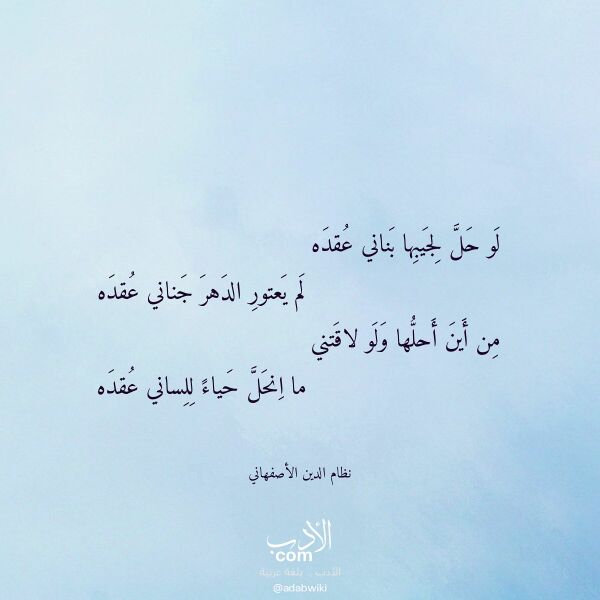 لَو حَلَّ لِجَيبِها بَناني عُقدَه
لَم يَعتورِ الدَهرَ جَناني عُقدَه
مِن أَينَ أَحلُّها وَلَو لاقَتني
ما اِنحَلَّ حَياءً لِلِساني عُقدَه
نظام الدين الأصفهاني
الأدب
com
الأدب .. بلغة عربية
@adabwiki